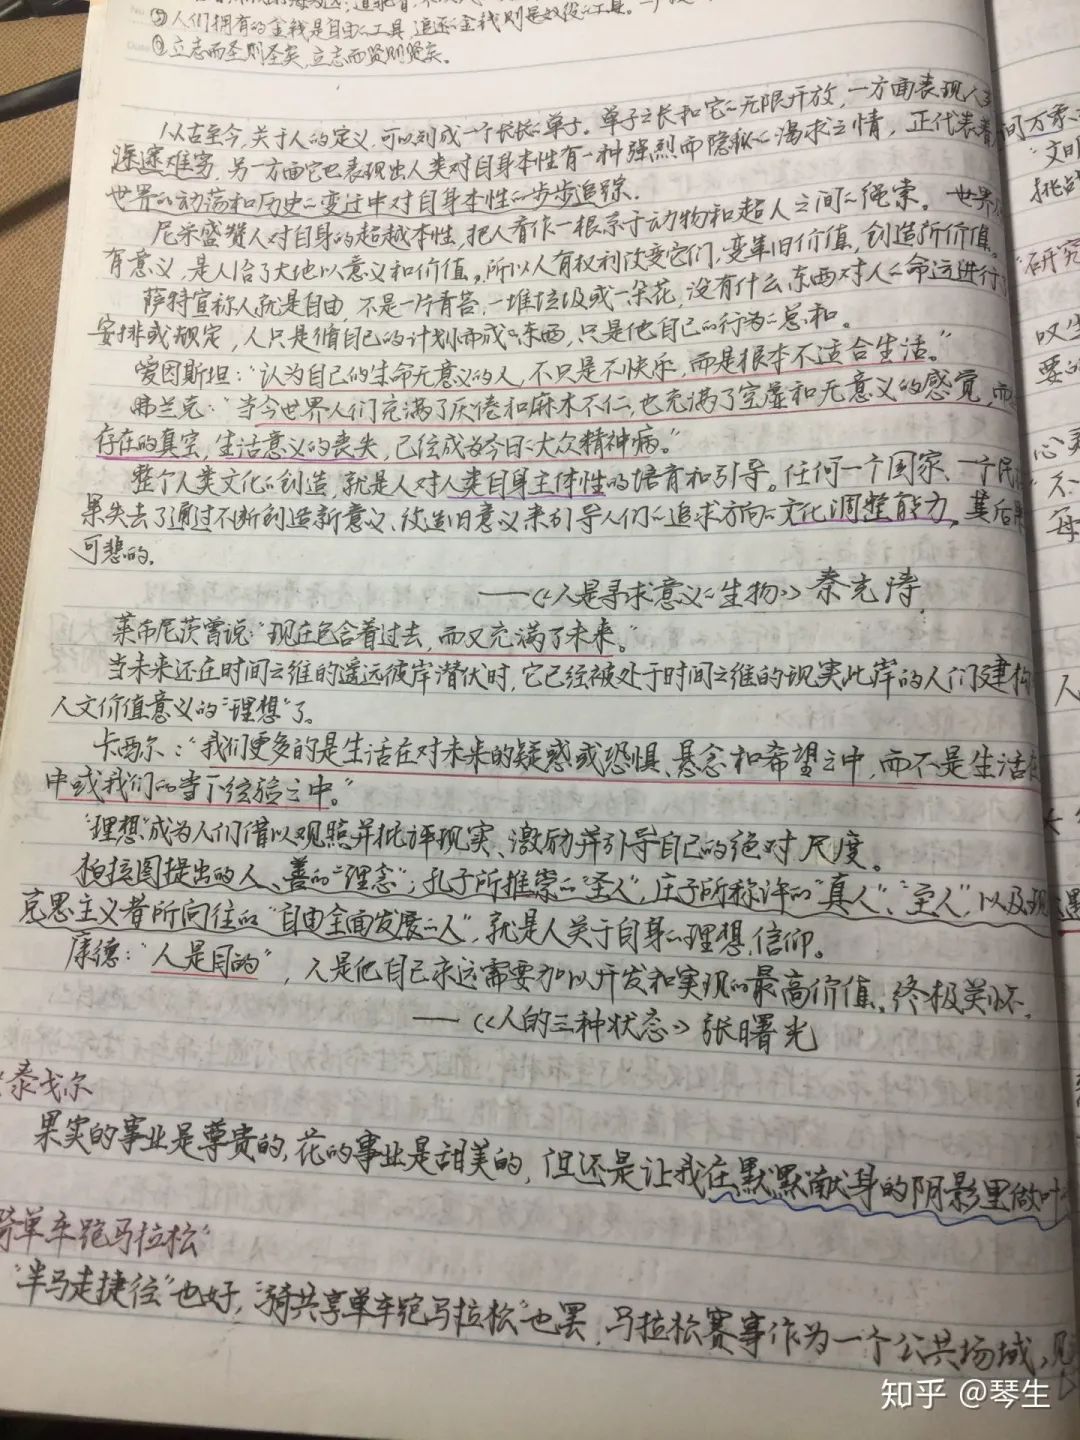 ⑤人们拥有的金钱是自由的工具,追逐的金钱则是奴役的工具。
⑥立志而圣则圣矣,立志而贤则贤矣。
从古至今,关于人的定义,可以列成一个长长的单子。单子之长和它的无限开放,一方面表现人的
深邃难穷,另一方面它也表现出人类对自身本性有一种强烈而隐秘的渴求之情,正代表着
世界的动荡和历史的变迁中对自身本性的步步追踪.
尼采盛赞人对自身的超越本性,把人看作一根系于动物和超人之间的绳索。世界
有意义,是人给了大地以意义和价值。所以人有权利改变它们,变革旧价值,创造新价值。
萨特宣称人就是自由,不是一片青苔,一堆垃圾或一朵花,没有什么东西对人的命运进行
安排或规定,人只是循自己的计划而成的东西,只是他自己的行为的总和。
爱因斯坦:"认为自己的生命无意义的人,不只是不快乐,而是根本不适合生活。"
弗兰克:"当今世界人们充满了厌倦和麻木不仁,也充满了空虚和无意义的感觉,而
存在的真空,生活意义的丧失,已经成为今日的大众精神病。"
整个人类文化的创造,就是人对人类自身主体性的培育和引导。任何一个国家、一个民
果失去了通过不断创造新意义、改造旧意义来引导人们的追求方向的文化调整能力,其后
可悲的.
——《人是寻求意义的生物》秦光涛
莱布尼茨曾说:"现在包含着过去,而又充满了未来。"
当未来还在时间之维的遥远彼岸潜伏时,它已经被处于时间之维的现实此岸的人们建构
人文价值意义的"理想"了。
卡西尔:"我们更多的是生活在对未来的疑惑或恐惧、悬念和希望之中,而不是生活在
中或我们的当下经验之中。"
"理想"成为人们借以观照并批评现实、激励并引导自己的绝对尺度。
柏拉图提出的人、善的"理念";孔子所推崇的"圣人",庄子所称许的"真人"、"至人",以及
克思主义者所向往的"自由全面发展的人",就是人关于自身的理想、信仰。
康德:"人是目的",人是他自己永远需要加以开发和实现的最高价值、终极关怀.
——《人的三种状态》张曙光
泰戈尔
果实的事业是尊贵的,花的事业是甜美的,但还是让我在默默献身的阴影里做叶
骑单车跑马拉松"
"半马走捷径"也好,"骑共享单车跑马拉松"也罢,马拉松赛事作为一个公共场域,
问万象
"文明
挑战
"研究
叹生
要的
心灵
"不
每
人
知乎 @琴生